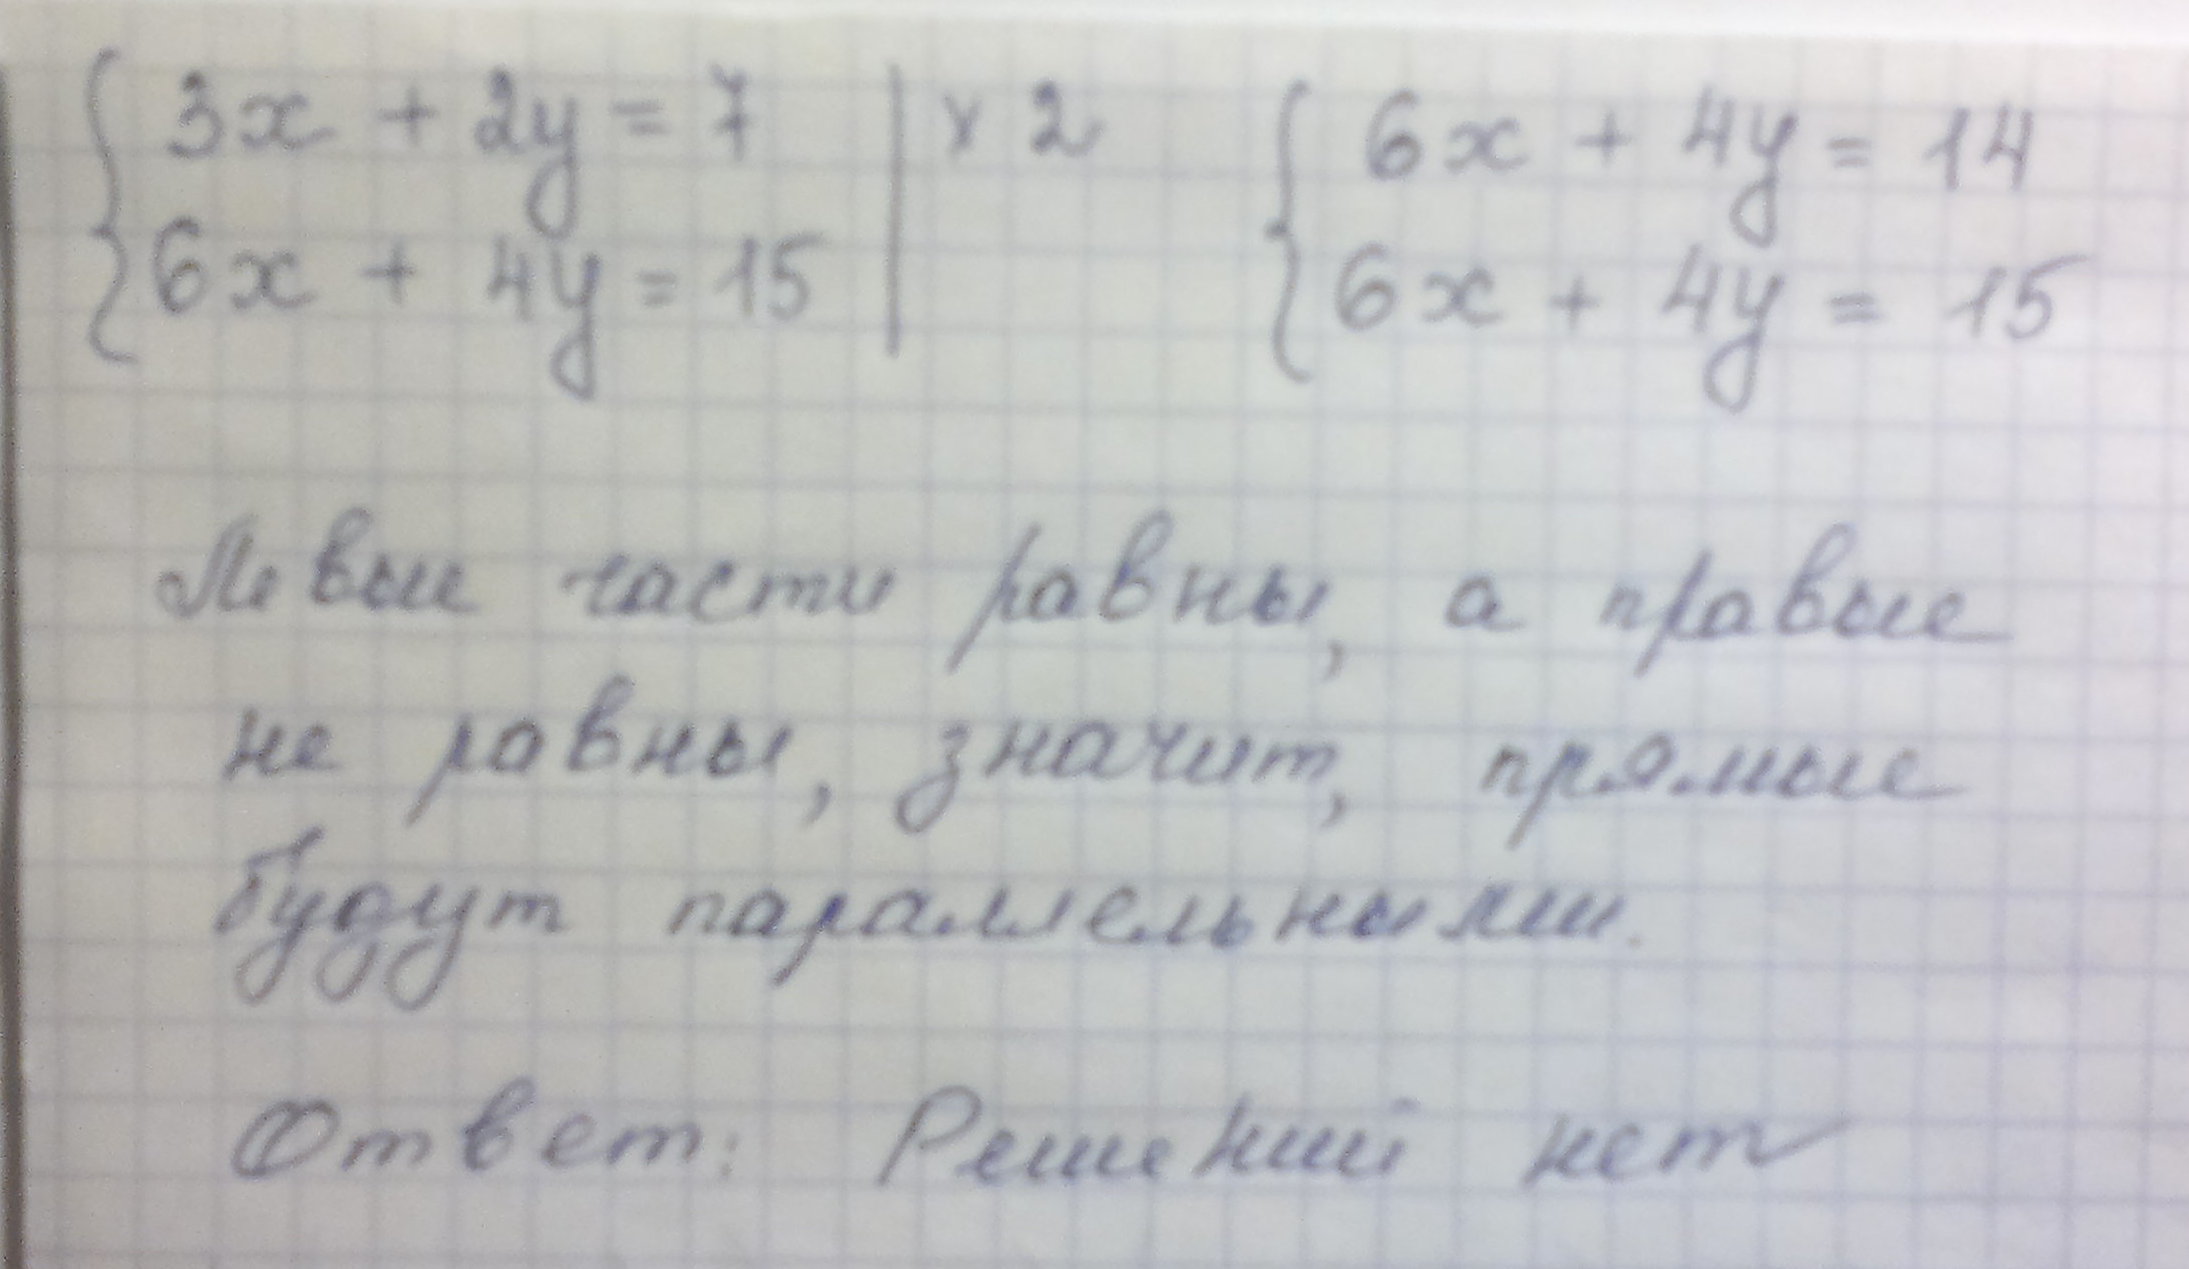 { 3x + 2y = 7 | × 2 { 6x + 4y = 14
6x + 4y = 15 6x + 4y = 15
Левые части равны, а правые
не равны, значит, прямые
будут параллельными.
Ответ: Решений нет